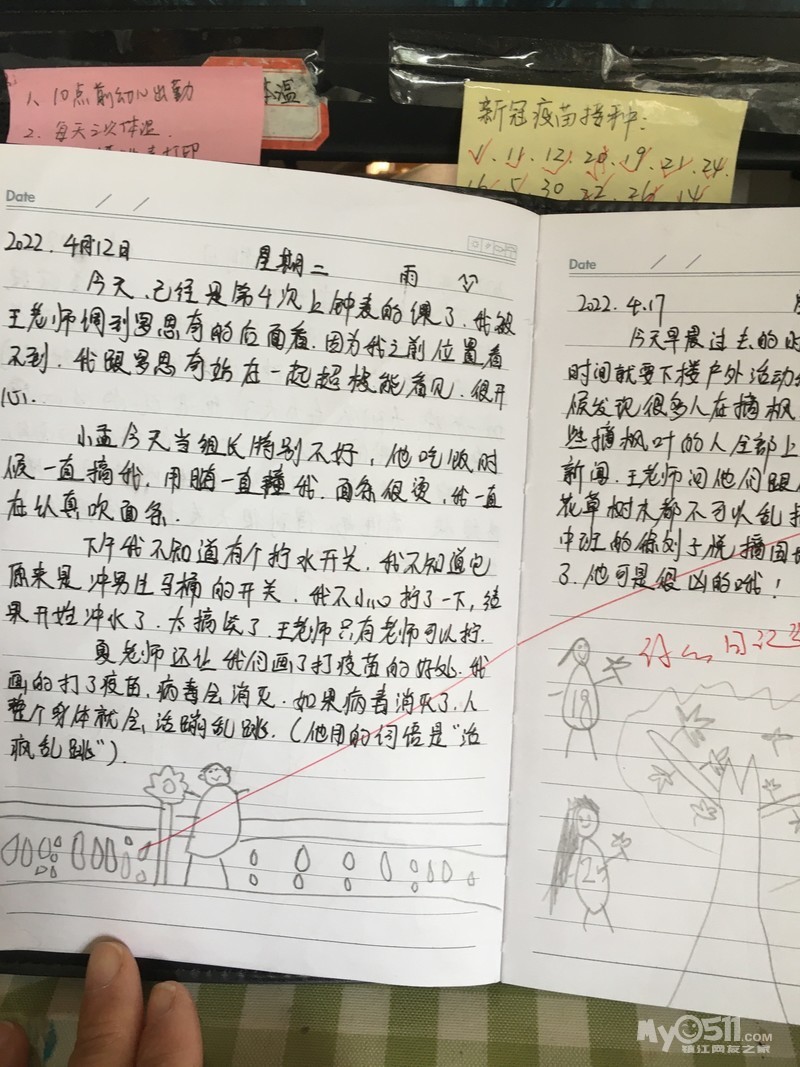 1、10点前幼儿出勤
2、每天三次体温.
体温
新冠疫苗接种:
1. 11. 12. 20. 19. 21. 24.
16. 5. 30. 22. 26. 14
Date
2022. 4月12日 星期二 雨
今天、已经是第4次上钟表的课了.我被
王老师调到罗思奇的后面看.因为我之前位置看
不到.我跟罗思奇站在一起超核能看见.很开
心.
小孟今天当组长特别不好,他吃饭时
候一直搞我,用脑一直撞我.面条很烫,我一直
在认真吹面条.
下午我不知道有个拧水开关.我不知道它
原来是冲男生马桶的开关.我不小心拧了一下,结
果开始冲水了.太搞笑了.王老师只有老师可以拧.
夏老师还让我们画了打疫苗的好处.我
画的打了疫苗,病毒会消灭.如果病毒消灭了.人
整个身体就会活蹦乱跳.(他用的词语是“活
疯乱跳”).
Date
2022. 4.17
今天早晨过去的时
时间就要下楼户外活动
候发现很多人在摘枫
些摘枫叶的人全部上
新闻.王老师问他们跟
花草树木都不可以乱
中班的徐刘子悦摘园
了.他可是很凶的哦!
日记
18
25
MyO511.com
镇江网友之家